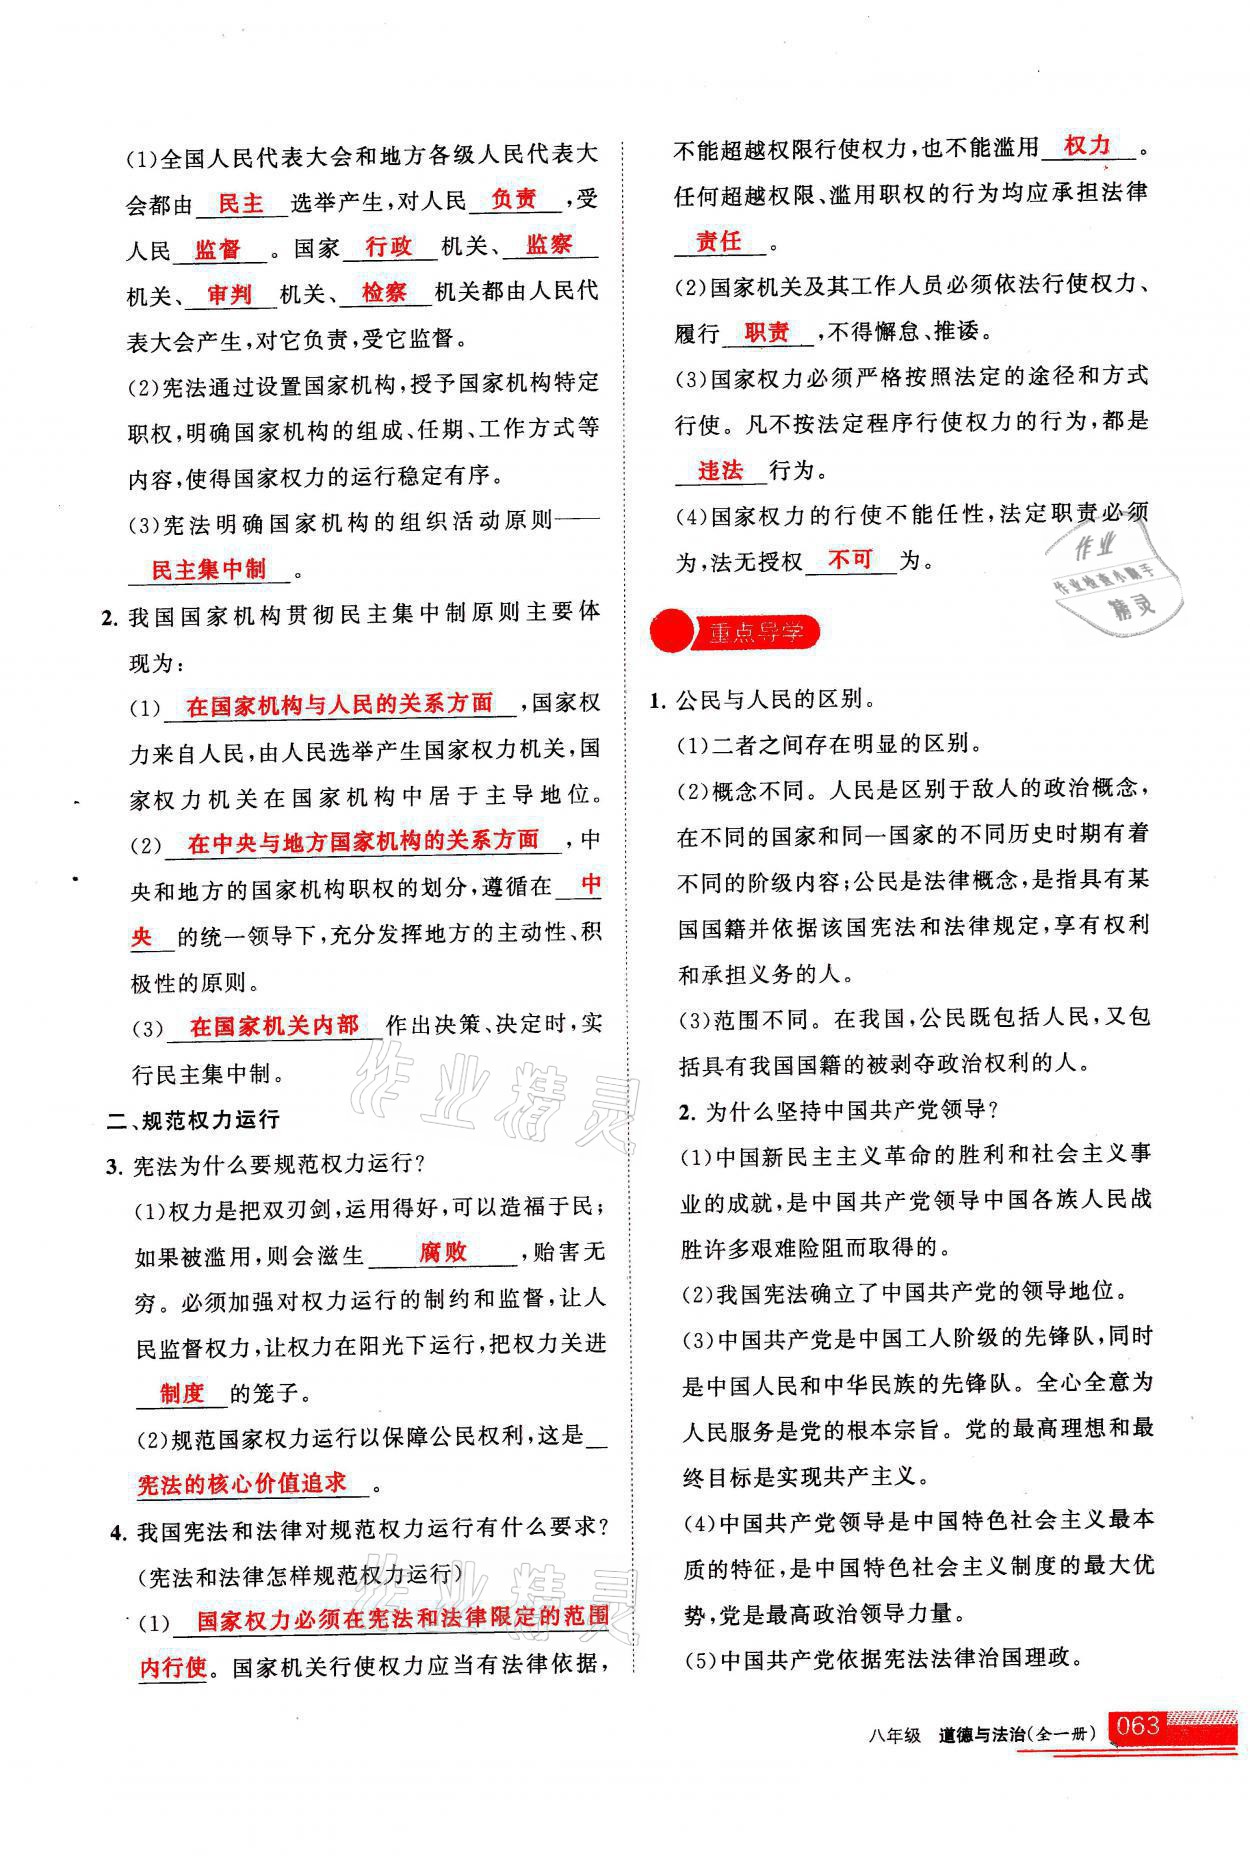 (1)全国人民代表大会和地方各级人民代表大
会都由 民主 选举产生,对人民 负责 ,受
人民 监督 。国家 行政 机关、 监察
机关、 审判 机关、 检察 机关都由人民代
表大会产生,对它负责,受它监督。
(2)宪法通过设置国家机构,授予国家机构特定
职权,明确国家机构的组成、任期、工作方式等
内容,使得国家权力的运行稳定有序。
(3)宪法明确国家机构的组织活动原则——
民主集中制 。
2. 我国国家机构贯彻民主集中制原则主要体
现为:
(1) 在国家机构与人民的关系方面 ,国家权
力来自人民,由人民选举产生国家权力机关,国
家权力机关在国家机构中居于主导地位。
(2) 在中央与地方国家机构的关系方面 ,中
央和地方的国家机构职权的划分,遵循在 中
央 的统一领导下,充分发挥地方的主动性、积
极性的原则。
(3) 在国家机关内部 作出决策、决定时,实
行民主集中制。
二、规范权力运行
3. 宪法为什么要规范权力运行?
(1)权力是把双刃剑,运用得好,可以造福于民;
如果被滥用,则会滋生 腐败 ,贻害无
穷。必须加强对权力运行的制约和监督,让人
民监督权力,让权力在阳光下运行,把权力关进
制度 的笼子。
(2)规范国家权力运行以保障公民权利,这是
宪法的核心价值追求 。
4. 我国宪法和法律对规范权力运行有什么要求?
(宪法和法律怎样规范权力运行)
(1) 国家权力必须在宪法和法律限定的范围
内行使。国家机关行使权力应当有法律依据,
不能超越权限行使权力,也不能滥用 权力 。
任何超越权限、滥用职权的行为均应承担法律
责任 。
(2)国家机关及其工作人员必须依法行使权力、
履行 职责 ,不得懈怠、推诿。
(3)国家权力必须严格按照法定的途径和方式
行使。凡不按法定程序行使权力的行为,都是
违法 行为。
(4)国家权力的行使不能任性,法定职责必须
为,法无授权 不可 为。
作业
作业检查小助手
精灵
重点导学
1. 公民与人民的区别。
(1)二者之间存在明显的区别。
(2)概念不同。人民是区别于敌人的政治概念,
在不同的国家和同一国家的不同历史时期有着
不同的阶级内容;公民是法律概念,是指具有某
国国籍并依据该国宪法和法律规定,享有权利
和承担义务的人。
(3)范围不同。在我国,公民既包括人民,又包
括具有我国国籍的被剥夺政治权利的人。
2. 为什么坚持中国共产党领导?
(1)中国新民主主义革命的胜利和社会主义事
业的成就,是中国共产党领导中国各族人民战
胜许多艰难险阻而取得的。
(2)我国宪法确立了中国共产党的领导地位。
(3)中国共产党是中国工人阶级的先锋队,同时
是中国人民和中华民族的先锋队。全心全意为
人民服务是党的根本宗旨。党的最高理想和最
终目标是实现共产主义。
(4)中国共产党领导是中国特色社会主义最本
质的特征,是中国特色社会主义制度的最大优
势,党是最高政治领导力量。
(5)中国共产党依据宪法法律治国理政。
作业精灵
作业精灵
八年级 道德与法治(全一册) 063